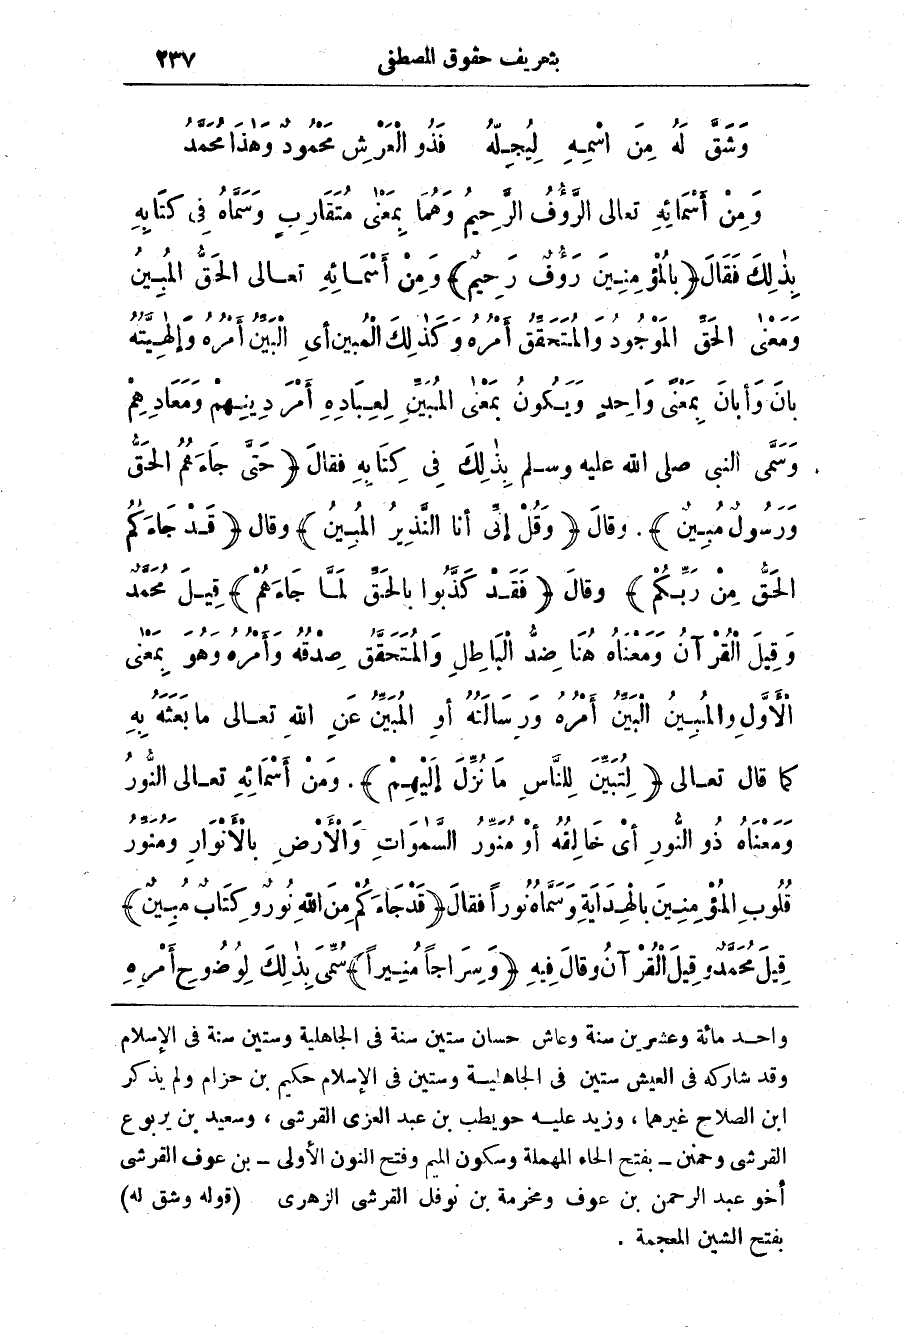 بتعريف حقوق المصطفى ٢٣٧
وَشَقَّ لَهُ مِنَ اسْمِهِ لِيُجِلَّهُ فَذُو الْعَرْشِ مَحْمُودٌ وَهٰذَا مُحَمَّدُ
وَمِنْ أَسْمَائِهِ تعالى الرَّؤُفُ الرَّحِيمُ وَهُمَا بِمَعْنًى مُتَقَارِبٍ وَسَمَّاهُ فِى كِتَابِهِ
بِذٰلِكَ فَقَالَ ﴿بِالْمُؤْمِنِينَ رَؤُفٌ رَحِيمٌ﴾ وَمِنْ أَسْمَائِهِ تعالى الحَقُّ المُبِينُ
وَمَعْنَى الحَقِّ المَوْجُودُ وَالمُتَحَقِّقُ أَمْرُهُ وَكَذٰلِكَ الْمُبِين أى الْبَيِّنُ أَمْرُهُ وَإِلٰهِيَّتُهُ
بانَ وَأَبانَ بِمَعْنًى وَاحِدٍ وَيَكُونُ بِمَعْنَى المُبَيِّنِ لِعِبَادِهِ أَمْرَ دِينِهِمْ وَمَعَادِهِمْ
وَسَمَّى النبى صلى الله عليه وسلم بِذٰلِكَ فِى كِتَابِهِ فقالَ ﴿ حَتَّى جَاءَهُمُ الحَقُّ
وَرَسُولٌ مُبِينٌ ﴾ . وقالَ ﴿ وَقُلْ إِنِّى أنا النَّذِيرُ المُبِينُ ﴾ وقال ﴿ قَدْ جَاءَكُمُ
الحَقُّ مِنْ رَبِّكُمْ ﴾ وقالَ ﴿ فَقَدْ كَذَّبُوا بِالحَقِّ لَمَّا جَاءَهُمْ ﴾ قِيلَ مُحَمَّدٌ
وَقِيلَ الْقُرْآنُ وَمَعْنَاهُ هُنَا ضِدُّ الْبَاطِلِ وَالمُتَحَقِّقُ صِدْقُهُ وَأَمْرُهُ وهُوَ بِمَعْنَى
الْأَوَّلِ وَالمُبِينُ الْبَيِّنُ أَمْرُهُ وَرِسَالَتُهُ أوِ المُبَيِّنُ عَنِ اللهِ تعالى ما بَعَثَهُ بِهِ
كما قال تعالى ﴿ لِتُبَيِّنَ لِلنَّاسِ مَا نُزِّلَ إِلَيْهِمْ ﴾ . وَمِنْ أَسْمَائِهِ تعالى النُّورُ
وَمَعْنَاهُ ذُو النُّورِ أىْ خَالِقُهُ أوْ مُنَوِّرُ السَّمٰوَاتِ وَالْأَرْضِ بِالْأَنْوَارِ وَمُنَوِّرُ
قُلُوبِ المُؤْمِنِينَ بِالْهِدَايَةِ وَسَمَّاهُ نُوراً فقالَ ﴿ قَدْ جَاءَكُمْ مِنَ اللهِ نُورٌ وَكِتَابٌ مُبِينٌ ﴾
قِيلَ مُحَمَّدٌ وَقِيلَ الْقُرْآنُ وقالَ فِيهِ ﴿ وَسِرَاجاً مُنِيراً ﴾ سُمِّىَ بِذٰلِكَ لِوُضُوحِ أَمْرِهِ
واحد مائة وعشرين سنة وعاش حسان ستين سنة فى الجاهلية وستين سنة فى الإسلام
وقد شاركه فى العيش ستين فى الجاهلية وستين فى الإسلام حكيم بن حزام ولم يذكر
ابن الصلاح غيرهما ، وزيد عليه حويطب بن عبد العزى القرشى ، وسعيد بن يربوع
القرشى وحمنن – بفتح الحاء المهملة وسكون الميم وفتح النون الأولى – بن عوف القرشى
أخو عبد الرحمن بن عوف ومخرمة بن نوفل القرشى الزهرى (قوله وشق له)
بفتح الشين المعجمة .